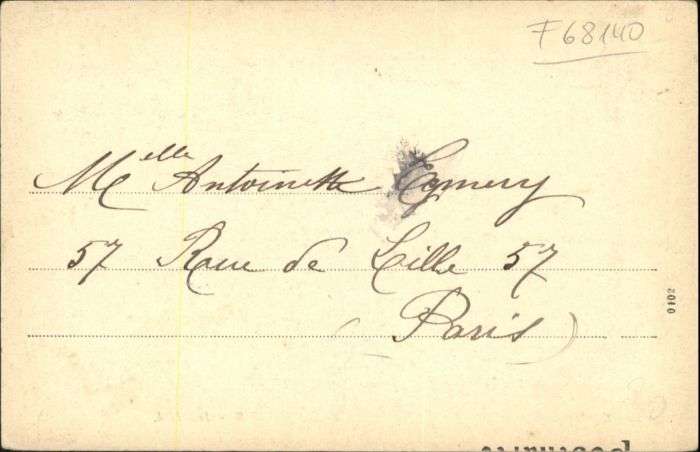 F68140
Melle Antoinette Eymery
57 Rue de Lille 57
(Paris)
0102